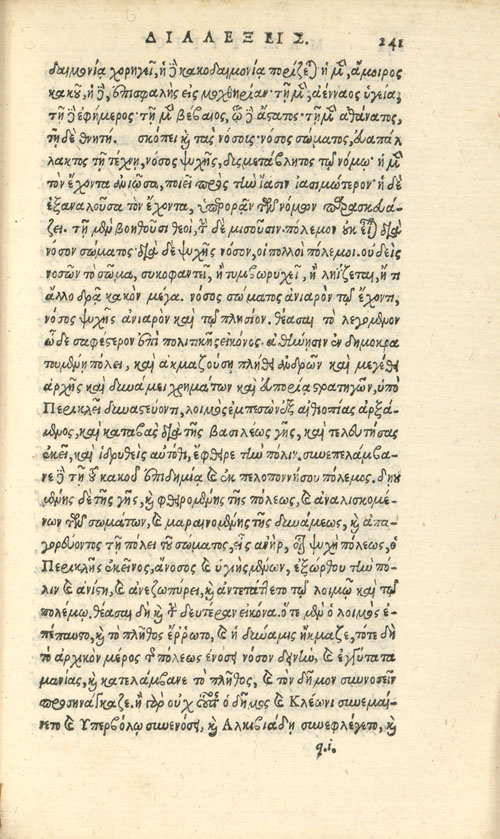 ΔΙΑΛΕΞΕΙΣ. 241
δαιμονία χορηγεῖ, ἡ δὲ κακοδαιμονία πορίζει καὶ ἡ μὲν, ἄμοιρος
κακοῦ, ἡ δὲ, ἐπισφαλὴς εἰς μοχθηρίαν· τῇ μὲν, ἀένναος ὑγεία,
τῇ δὲ ἐφήμερος· τῇ μὲν βέβαιος, τῇ δὲ ἄστατος· τῇ μὲν ἀθάνατος,
τῇ δὲ θνητή. σκόπει καὶ τὰς νόσους· νόσος σώματος, εὐαπάλ
λακτος τῇ τέχνῃ, νόσος ψυχῆς, δυσμετάβλητος τῷ νόμῳ· ἡ μὲν
τὸν ἔχοντα ἀνιῶσα, ποιεῖ πρὸς τὴν ἴασιν ἰασιμώτερον· ἡ δὲ
ἐξαναλοῦσα τὸν ἔχοντα, ὑπερορᾶν τῶν νόμων παρασκευά-
ζει. τῇ μὲν βοηθοῦσι θεοὶ, τὴν δὲ μισοῦσιν· πόλεμον οὐκ διὰ
νόσον σώματος· διὰ δὲ ψυχῆς νόσον, οἱ πολλοὶ πόλεμοι. οὐδεὶς
νοσῶν τὸ σῶμα, συκοφαντεῖ, ἢ τυμβωρυχεῖ, ἢ ληίζεται, ἤ τι
ἄλλο δρᾷ κακὸν μέγα. νόσος σώματος ἀνιαρὸν τῷ ἔχοντι,
νόσος ψυχῆς ἀνιαρὸν καὶ τῷ πλησίον. θέασαι τὸ λεγόμενον
ὧδε σαφέστερον ἐπὶ πολιτικῆς εἰκόνος· ἀθήνησιν ἐν δημοκρα
τουμένῃ πόλει, καὶ ἀκμαζούσῃ πλήθει ἀνδρῶν καὶ μεγέθει
ἀρχῆς καὶ δυνάμει χρημάτων καὶ εὐπορίᾳ στρατηγῶν, ὑπὸ
Περικλεῖ δυναστεύοντι, λοιμὸς ἐμπεσὼν ἐξ αἰθιοπίας ἀρξά-
μενος, καὶ καταβὰς διὰ τῆς βασιλέως γῆς, καὶ τελευτήσας
ἐκεῖ, καὶ ἱδρυθεὶς αὐτόθι, ἔφθειρε τὴν πόλιν. συνεπελάμβα-
νε δὲ τῇ τοῦ κακοῦ ἐπιδημίᾳ καὶ ὁ ἐκ πελοποννήσου πόλεμος. δῃου
μένης δὲ τῆς γῆς, καὶ φθειρομένης τῆς πόλεως, καὶ ἀναλισκομέ-
νων τῶν σωμάτων, καὶ μαραινομένης τῆς δυνάμεως, καὶ ἀπα-
γορεύοντος τῇ πόλει τοῦ σώματος, εἷς ἀνὴρ, οἷον ψυχὴ πόλεως, ὁ
Περικλῆς ἐκεῖνος, ἄνοσος καὶ ὑγιὴς μένων, ἐξώρθου τὴν πό-
λιν καὶ ἀνίστη, καὶ ἀνεζωπύρει, καὶ ἀντετάττετο τῷ λοιμῷ καὶ τῷ
πολέμῳ. θέασαι δὴ καὶ τὴν δευτέραν εἰκόνα. ὅτε μὲν ὁ λοιμὸς ἐ-
πέπαυτο, καὶ τὸ πλῆθος ἔρρωτο, καὶ ἡ δύναμις ἤκμαζε, τότε δὴ
τὸ ἀρχικὸν μέρος τῆς πόλεως ἐνόσει νόσον δεινὴν, καὶ ἐγγύτατα
μανίας, καὶ κατελάμβανε τὸ πλῆθος, καὶ τὸν δῆμον συννοσεῖν
προσηνάγκαζε. ἢ γὰρ οὐχ οὗτος ὁ δῆμος καὶ Κλέωνι συνεμαί-
νετο καὶ Ὑπερβόλῳ συνενόσει, καὶ Ἀλκιβιάδῃ συνεφλέγετο, καὶ
q.i.